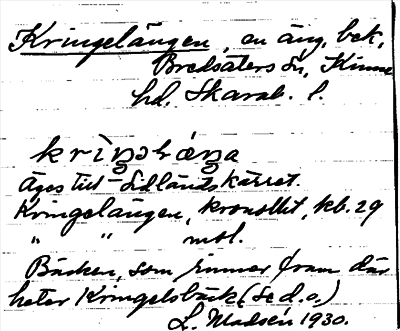 Kringelängen, en äng, bek.
Bredsäters sn, Kinne
hd. Skarab. l.
kriŋəlæŋa
Äges till Lidlandskärret.
Kringelängen, kronollut, kb. 29
" " mtl.
Bäcken, som rinner fram där
heter Kringelsbäck (Se d.o.)
L. Madsén 1930.